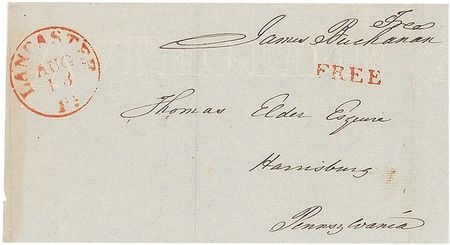 Free
James Buchanan
LANCASTER
AUG
13
Pa
FREE
Thomas Elder Esquire
Harrisburg
Pennsylvania